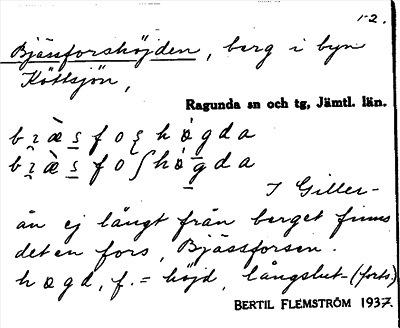 1-2.
Bjässforshöjden, berg i byn
Köttsjön,
Ragunda sn och tg, Jämtl. län.
I Giller-
ån ej långt från berget finns
det en fors, Bjässforsen.
høgd, f. = höjd, långslut-(forts.)
BERTIL FLEMSTRÖM 1937.